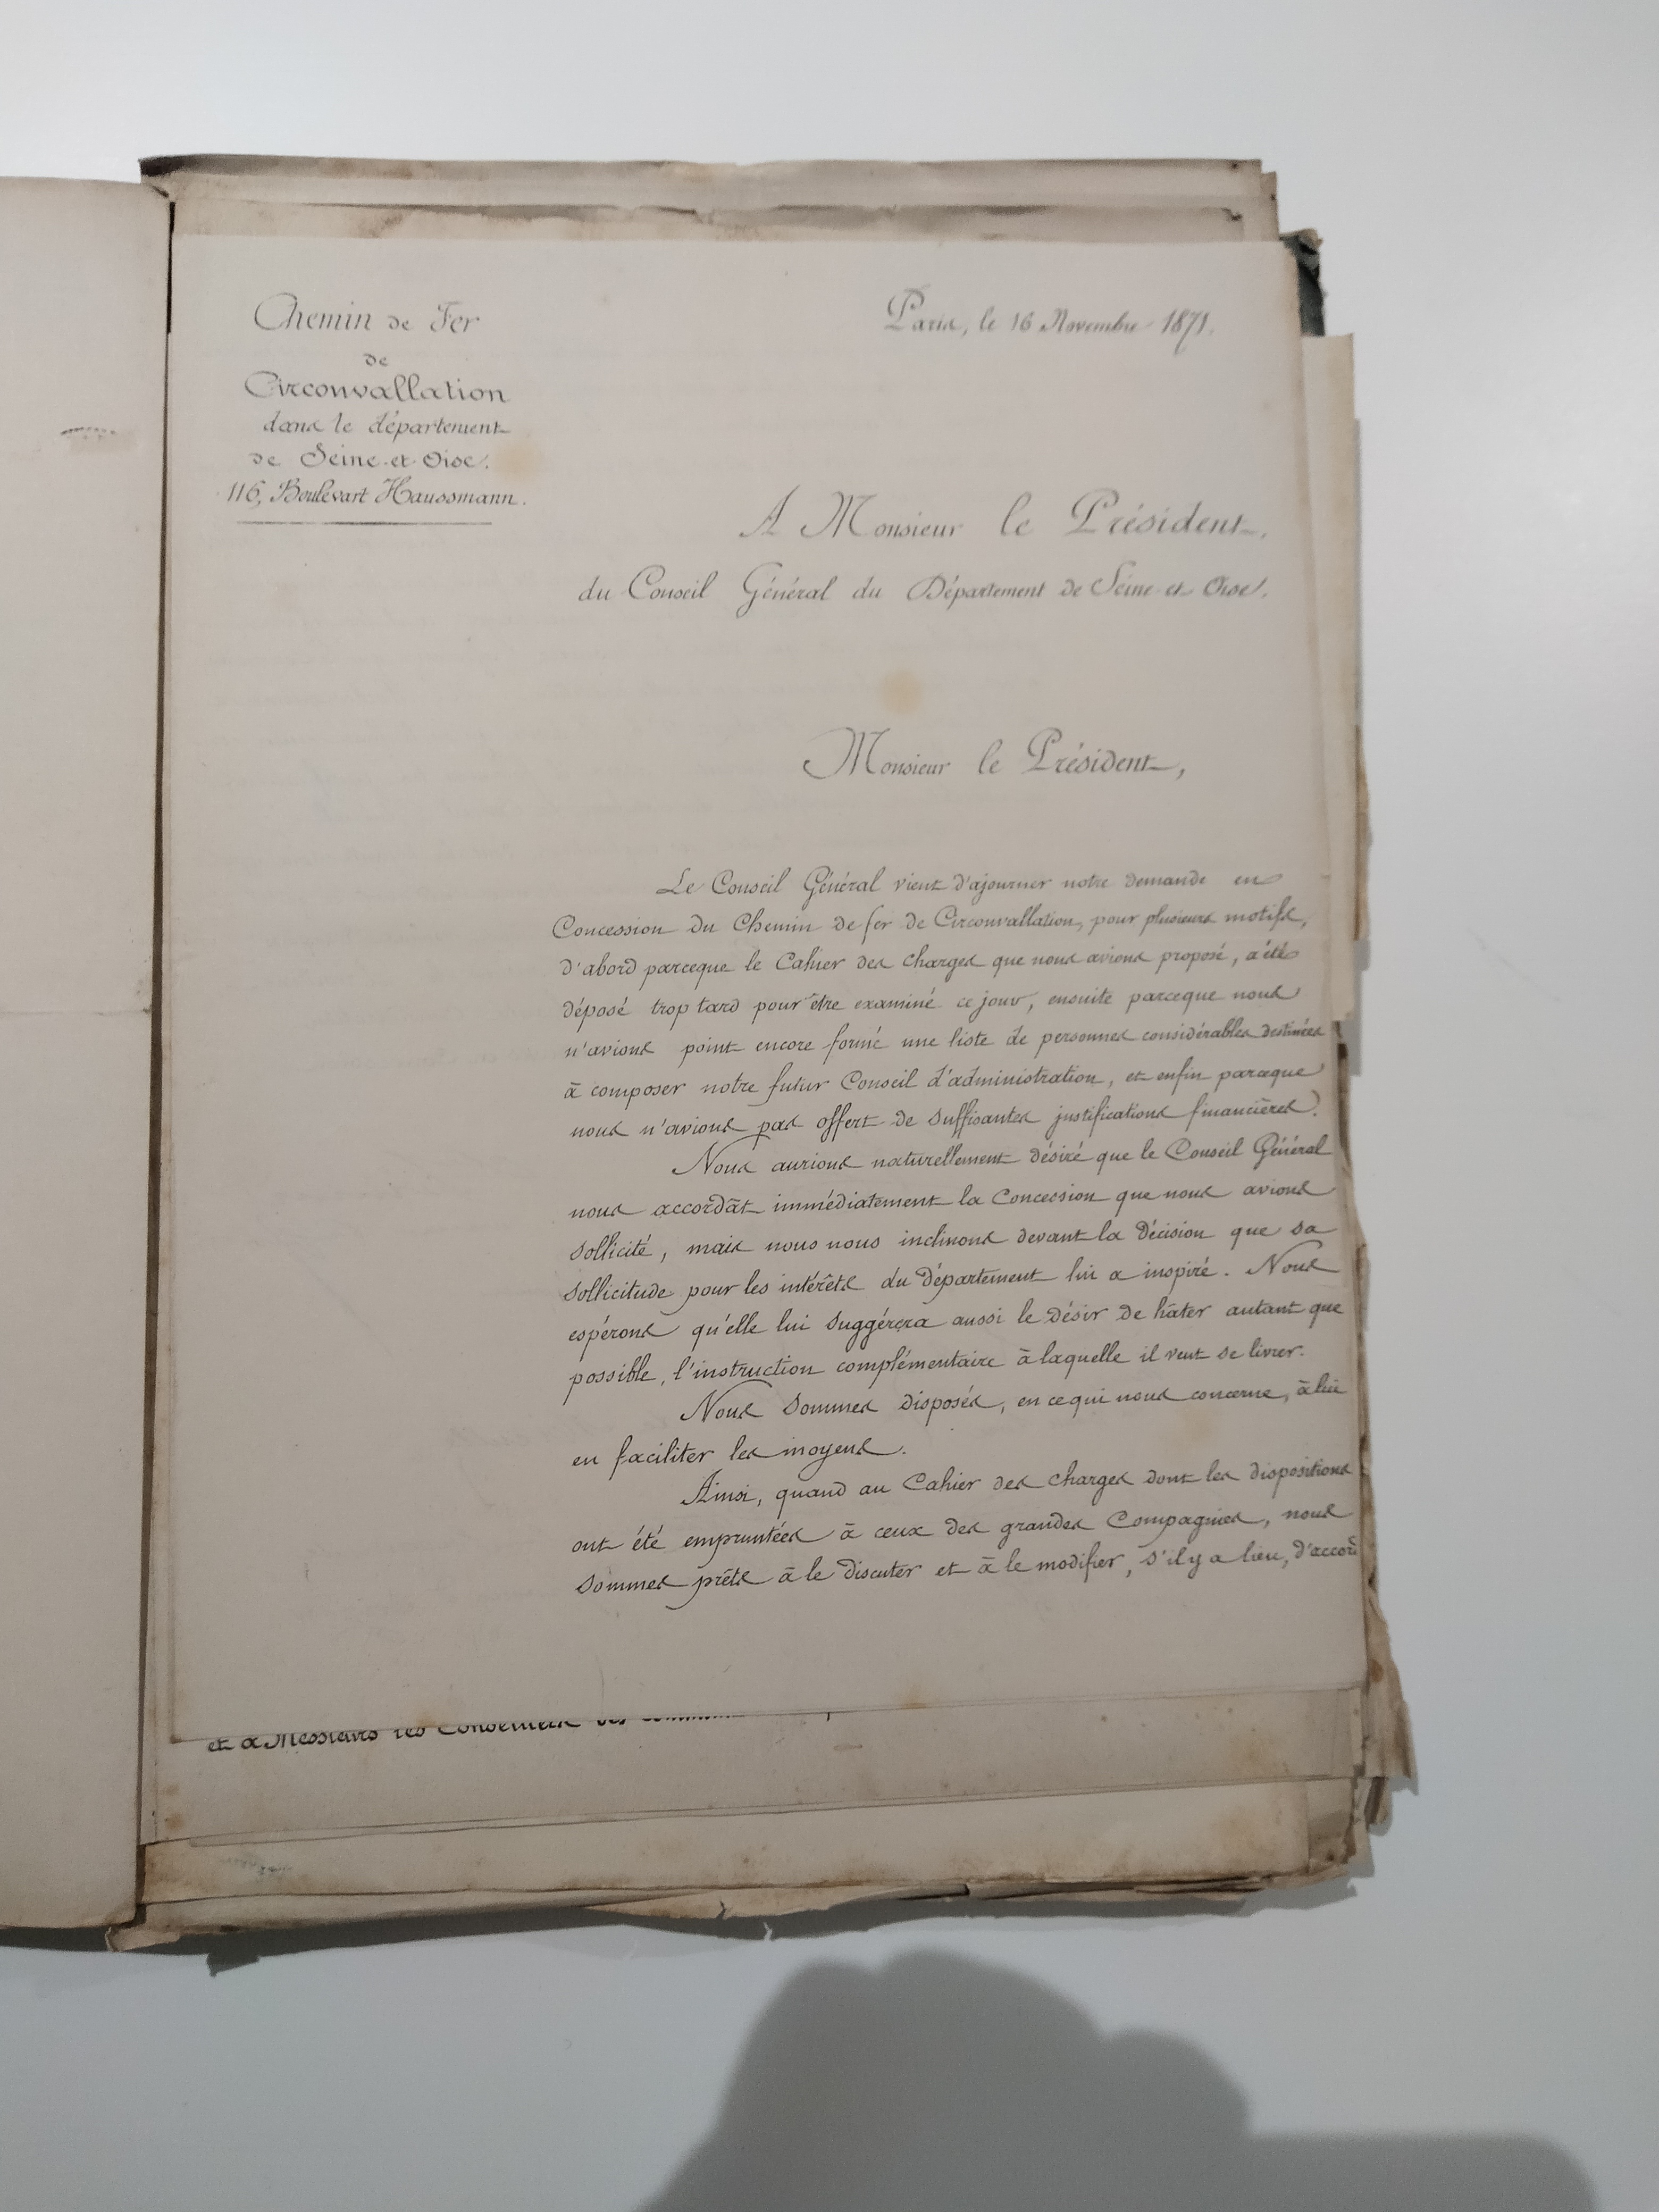 Chemin de Fer
de
Circonvallation
dans le département
de Seine-et-Oise.
116, Boulevart Haussmann.
Paris, le 16 Novembre 1871.
A Monsieur le Président,
du Conseil Général du Département de Seine-et-Oise.
Monsieur le Président,
Le Conseil Général vient d'ajourner notre demande en
Concession du Chemin de fer de Circonvallation, pour plusieurs motifs,
d'abord parceque le Cahier des charges que nous avions proposé, a été
déposé trop tard pour être examiné ce jour, ensuite parceque nous
n'avions point encore formé une liste de personnes considérables destinées
à composer notre futur Conseil d'administration, et enfin parceque
nous n'avions pas offert de suffisantes justifications financières.
Nous aurions naturellement désiré que le Conseil Général
nous accordât immédiatement la Concession que nous avions
sollicité, mais nous nous inclinons devant la décision que sa
sollicitude pour les intérêts du département lui a inspiré. Nous
espérons qu'elle lui suggérera aussi le désir de hâter autant que
possible, l'instruction complémentaire à laquelle il veut se livrer.
Nous sommes disposés, en ce qui nous concerne, à lui
en faciliter les moyens.
Ainsi, quand au Cahier des charges dont les dispositions
ont été empruntées à ceux des grandes Compagnies, nous
sommes prêts à le discuter et à le modifier, s'il y a lieu, d'accord
et à Messieurs les Conseillers